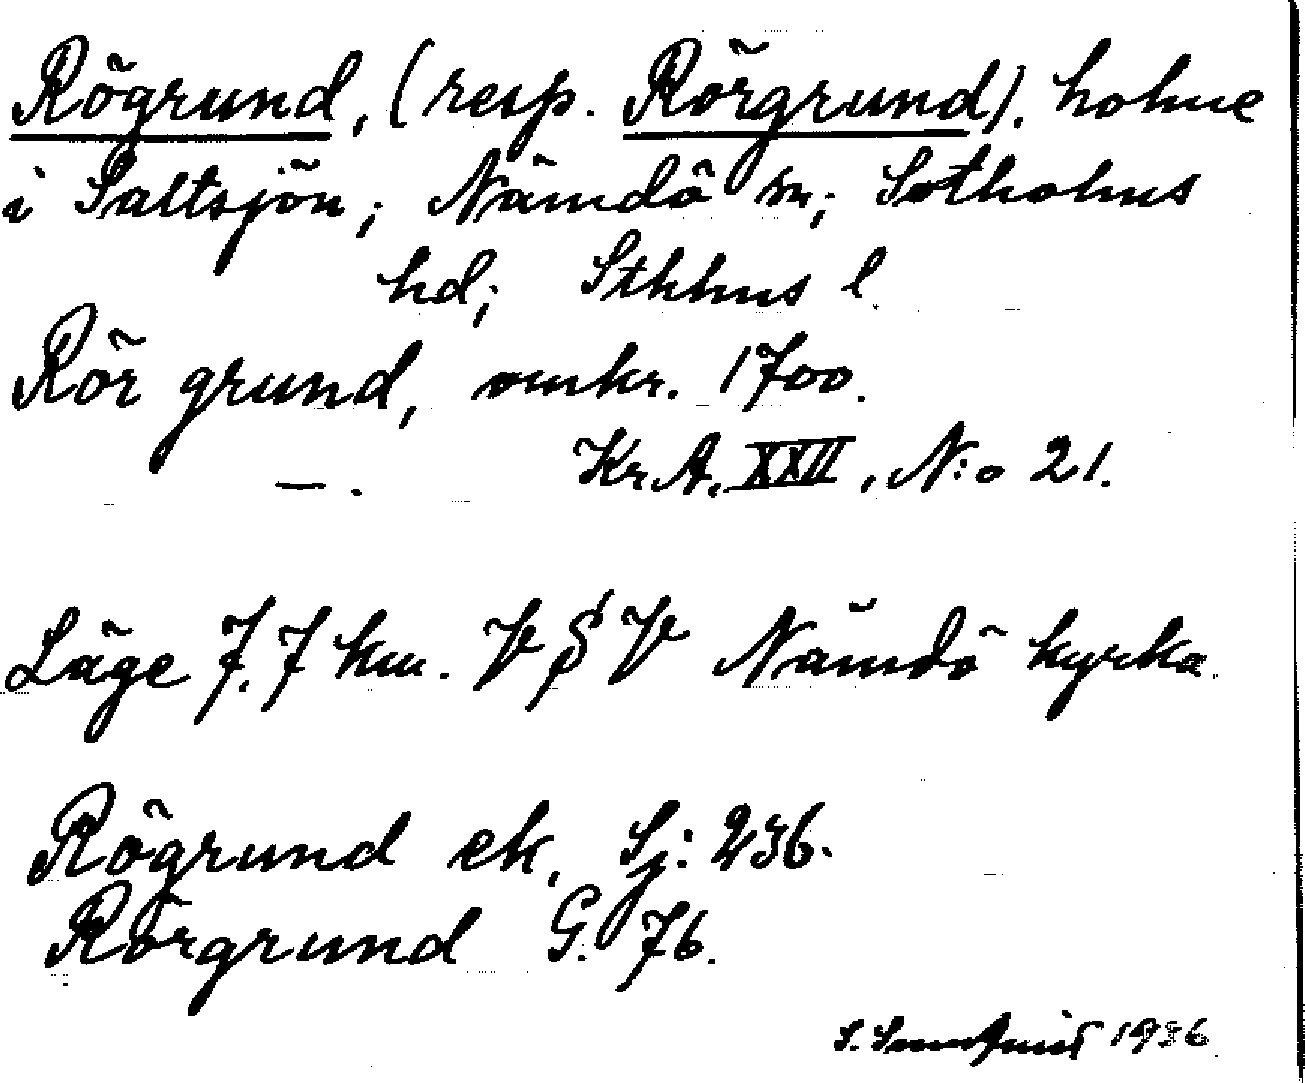 Rögrund, (resp. Rörgrund). holme
i Saltsjön; Nämdö sn; Sotholms
hd; Sthlms l.
Rör grund, omkr. 1700.
—. Kr.A. XXII, N:o 21.
Läge 7.7 km. V S V Nämdö kyrka.
Rögrund ek, Sj: 236.
Rörgrund G. 76.
S. 1936